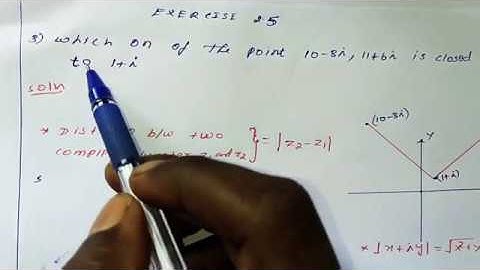 EXERCISE 2.5
3) which on of the point 10-8i, 11+6i is closed
to 1+i
soln
* Dist b/w two
compl z2 } = |z2-z1|
s
(10-8i)
y
(1+i)
* |x+iy| = √x